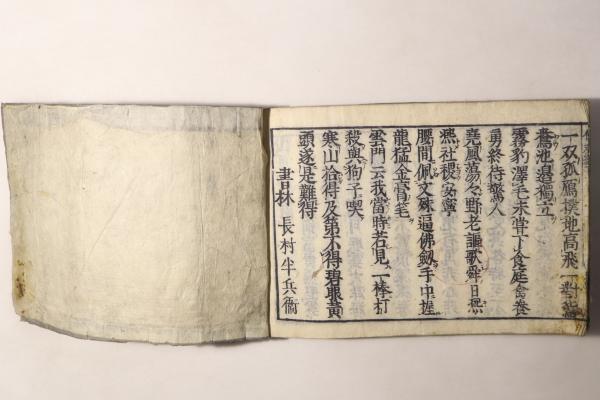 一双孤鴈撲地高飛一對鴛
鴦池邊獨立
霧豹澤毛未甞下食庭禽養
勇終待驚人
堯風蕩々野老謳歌舜日熙
熙社稷安寧
腰間佩文殊逼佛劔手中握
龍猛金膏笔
雲門云我當時若見一棒打
殺與狗子喫
寒山拾得及第不得碧眼黄
頭遂是難得
書林 長村半兵衞